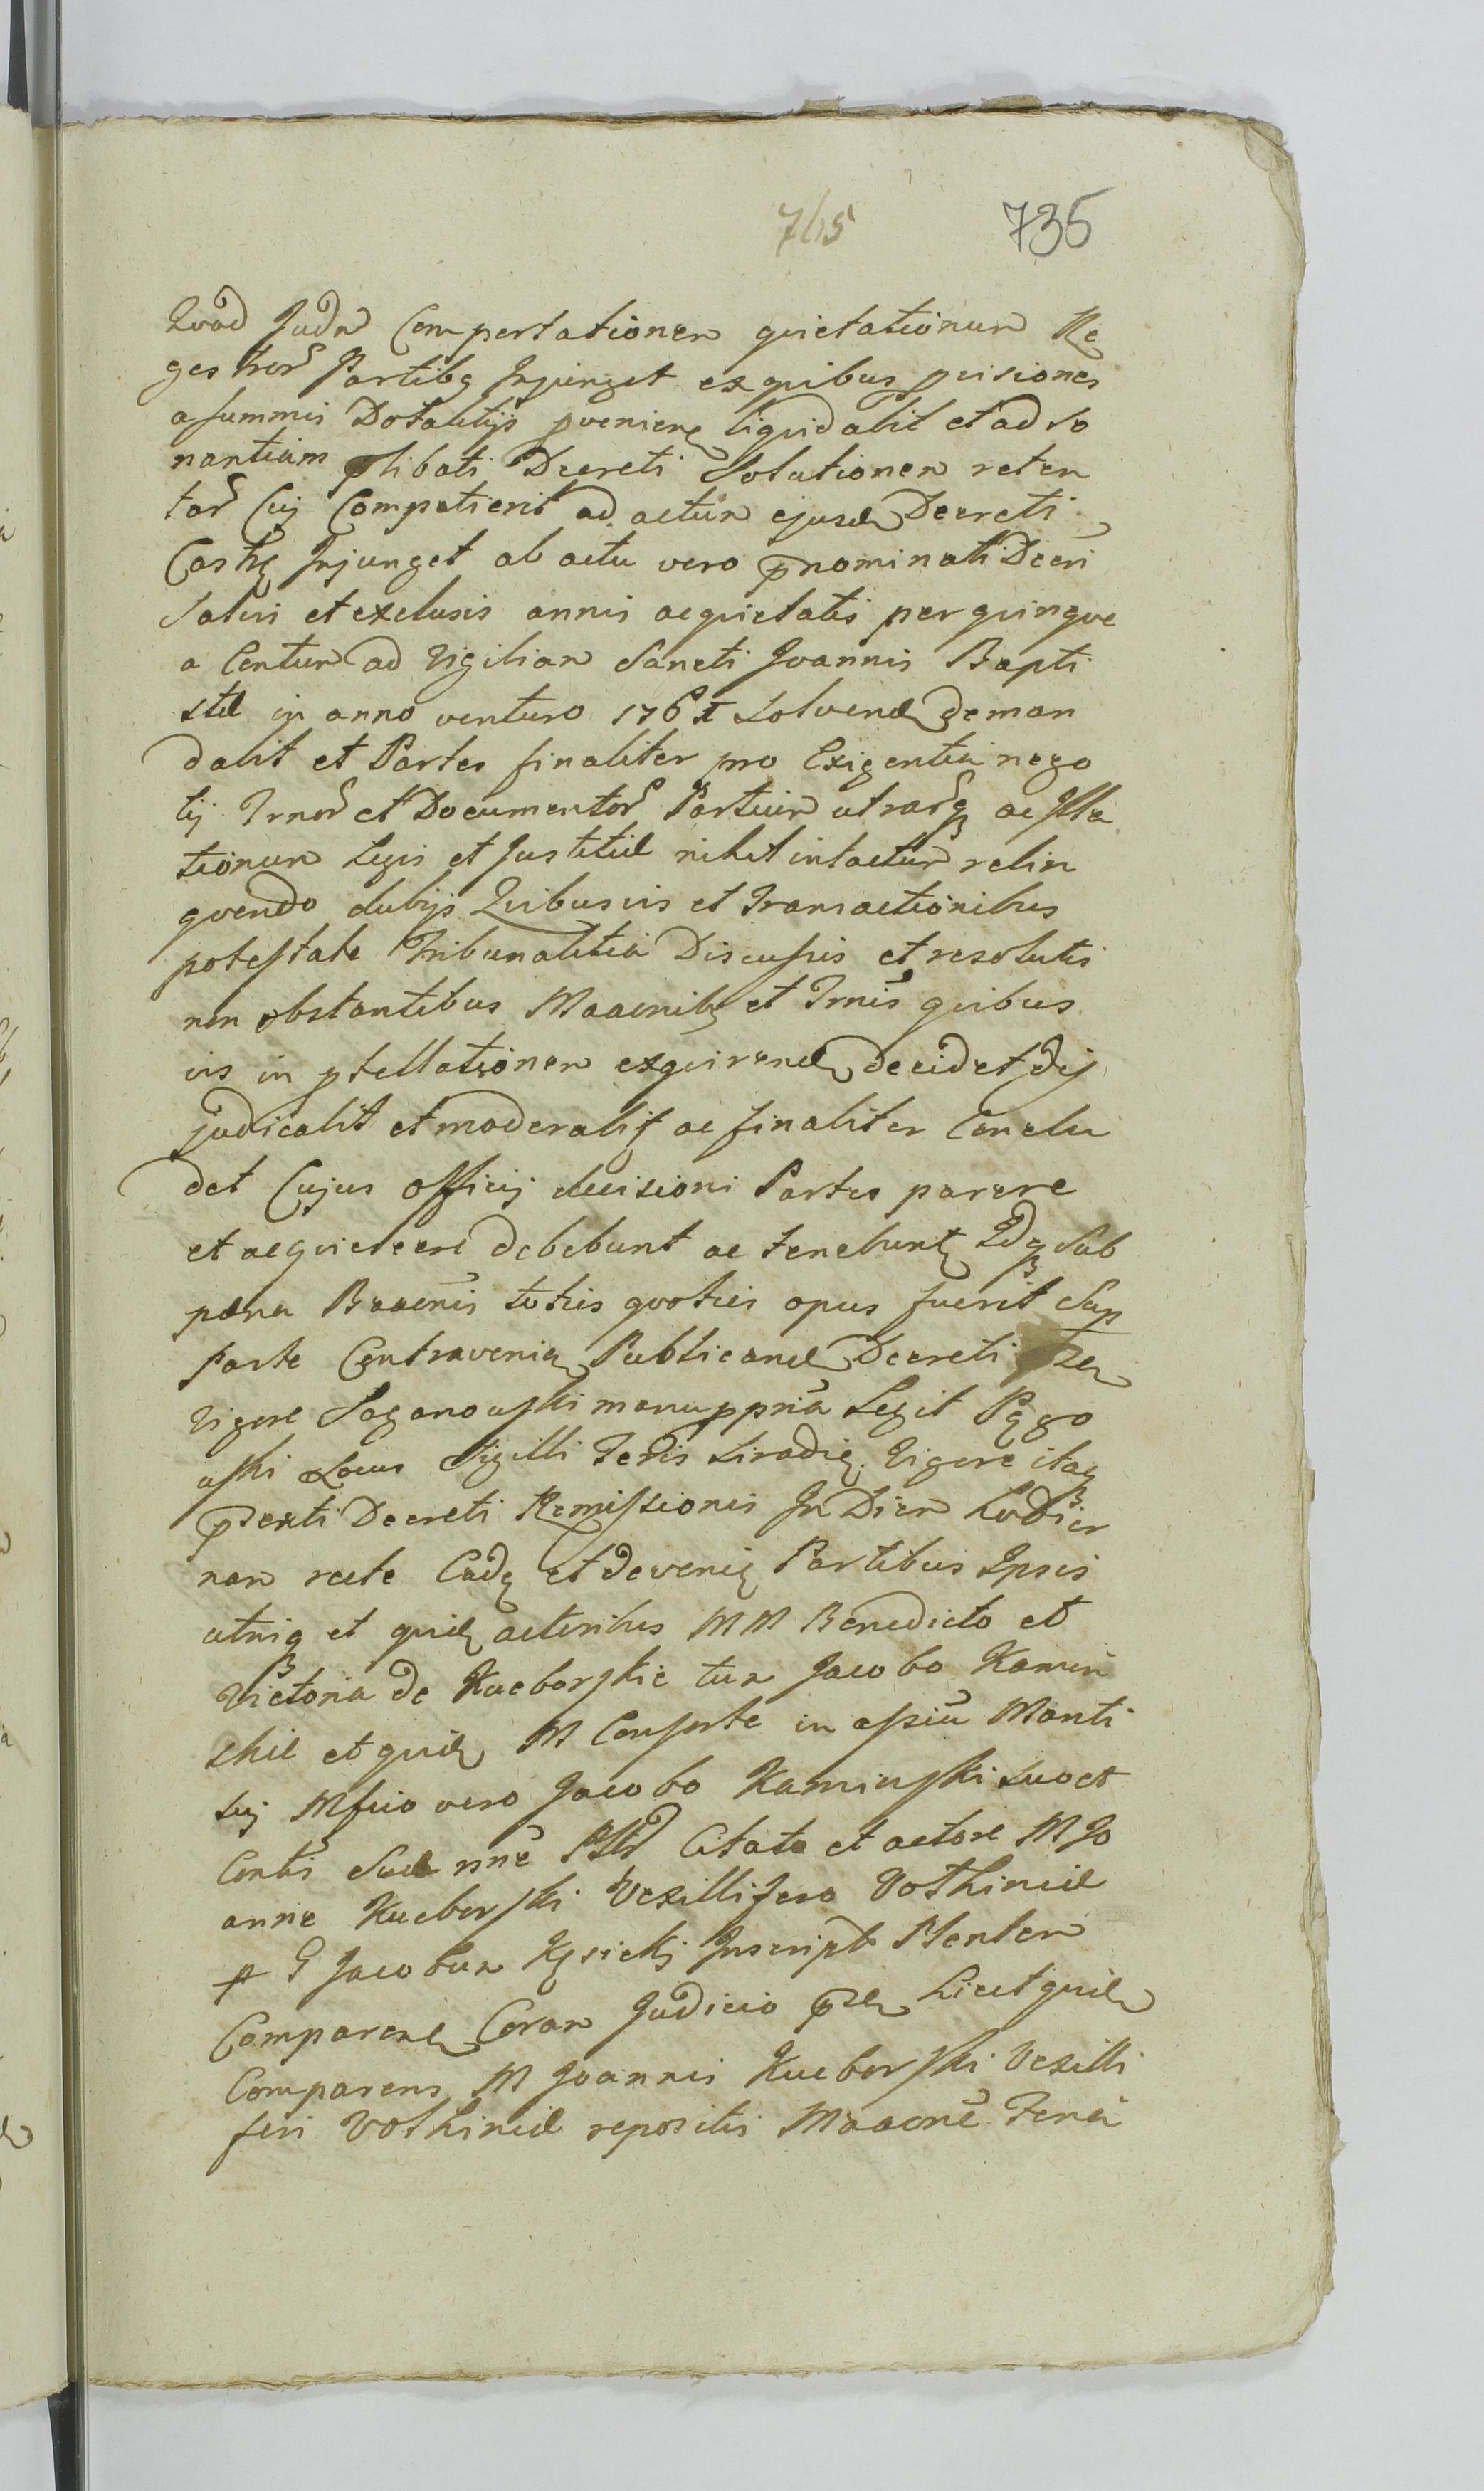 735
Quod Judm Comportationem quietationum Re
gestror Partibq Injunget ex quibus pvisiones
a summis Dotalitijs pvenien liquidabit et ad so
nantiam plibati Decreti Solutionem reten
tor Cuj Competierit ad actum ejusd Decreti
Castr Injunget ab actu vero pnominati Decri
Salvis et exclusis annis acquietatis per quinque
a Centum ad Vigiliam Sancti Joannis Bapti
stæ in anno venturo 1761 solvend deman
dabit et Partes finaliter pro Exigentia nego
tij Trnor et Documentor Partium utrarq ac Alle
tionum Legis et Justitiæ nihil intactum relin
quendo dubijs Quibusvis et Transactionibus
potestate Tribunalitia Discussis et resolutis
non obstantibus Maaonibq et Trnis quibus
vis in ptellationem exquirend decidet dij
judicabit et moderabit ac finaliter Conclu
det Cujus Officij decisioni Partes parere
et acquiescere debebunt ac tenebunt Idq Sub
pæna Bnaonis toties quoties opus fuerit Sup
parte Contravenien Publicand Decreti
Vigore Soganowski manu ppria Legit Pggo
wski Locus Sigilli Terris Siradien Vigore itaq
pserti Decreti Remissionis In Diem hodier
nam recte Caden et devenien Partibus Ipsis
utrisq et quidem actoribus MM Benedicto et
Victoria de Kucborskie tum Jacobo Kamin
skie et quidem M Consorte in assia Mariti
sui M suo vero Jacobo Kaminski suo et
Contis Suæ nne Citato et actore M Jo
anne Kucborski Vexillifero Volhiniæ
p G Jacobum Inscript Plenten
Comparend Coram Judicio psen Licet quidem
Comparens M Joannis Kucborski Vexilli
feri Volhiniæ repositis Maaone Terra